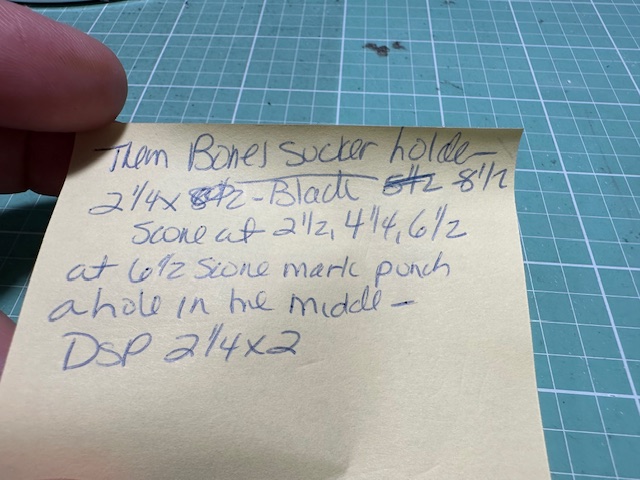 Them Bones sucker holder
2 1/4 x - Black 8 1/2
Score at 2 1/2, 4 1/4, 6 1/2
at 6 1/2 Score mark punch
a hole in the middle -
DSP 2 1/4 x 2